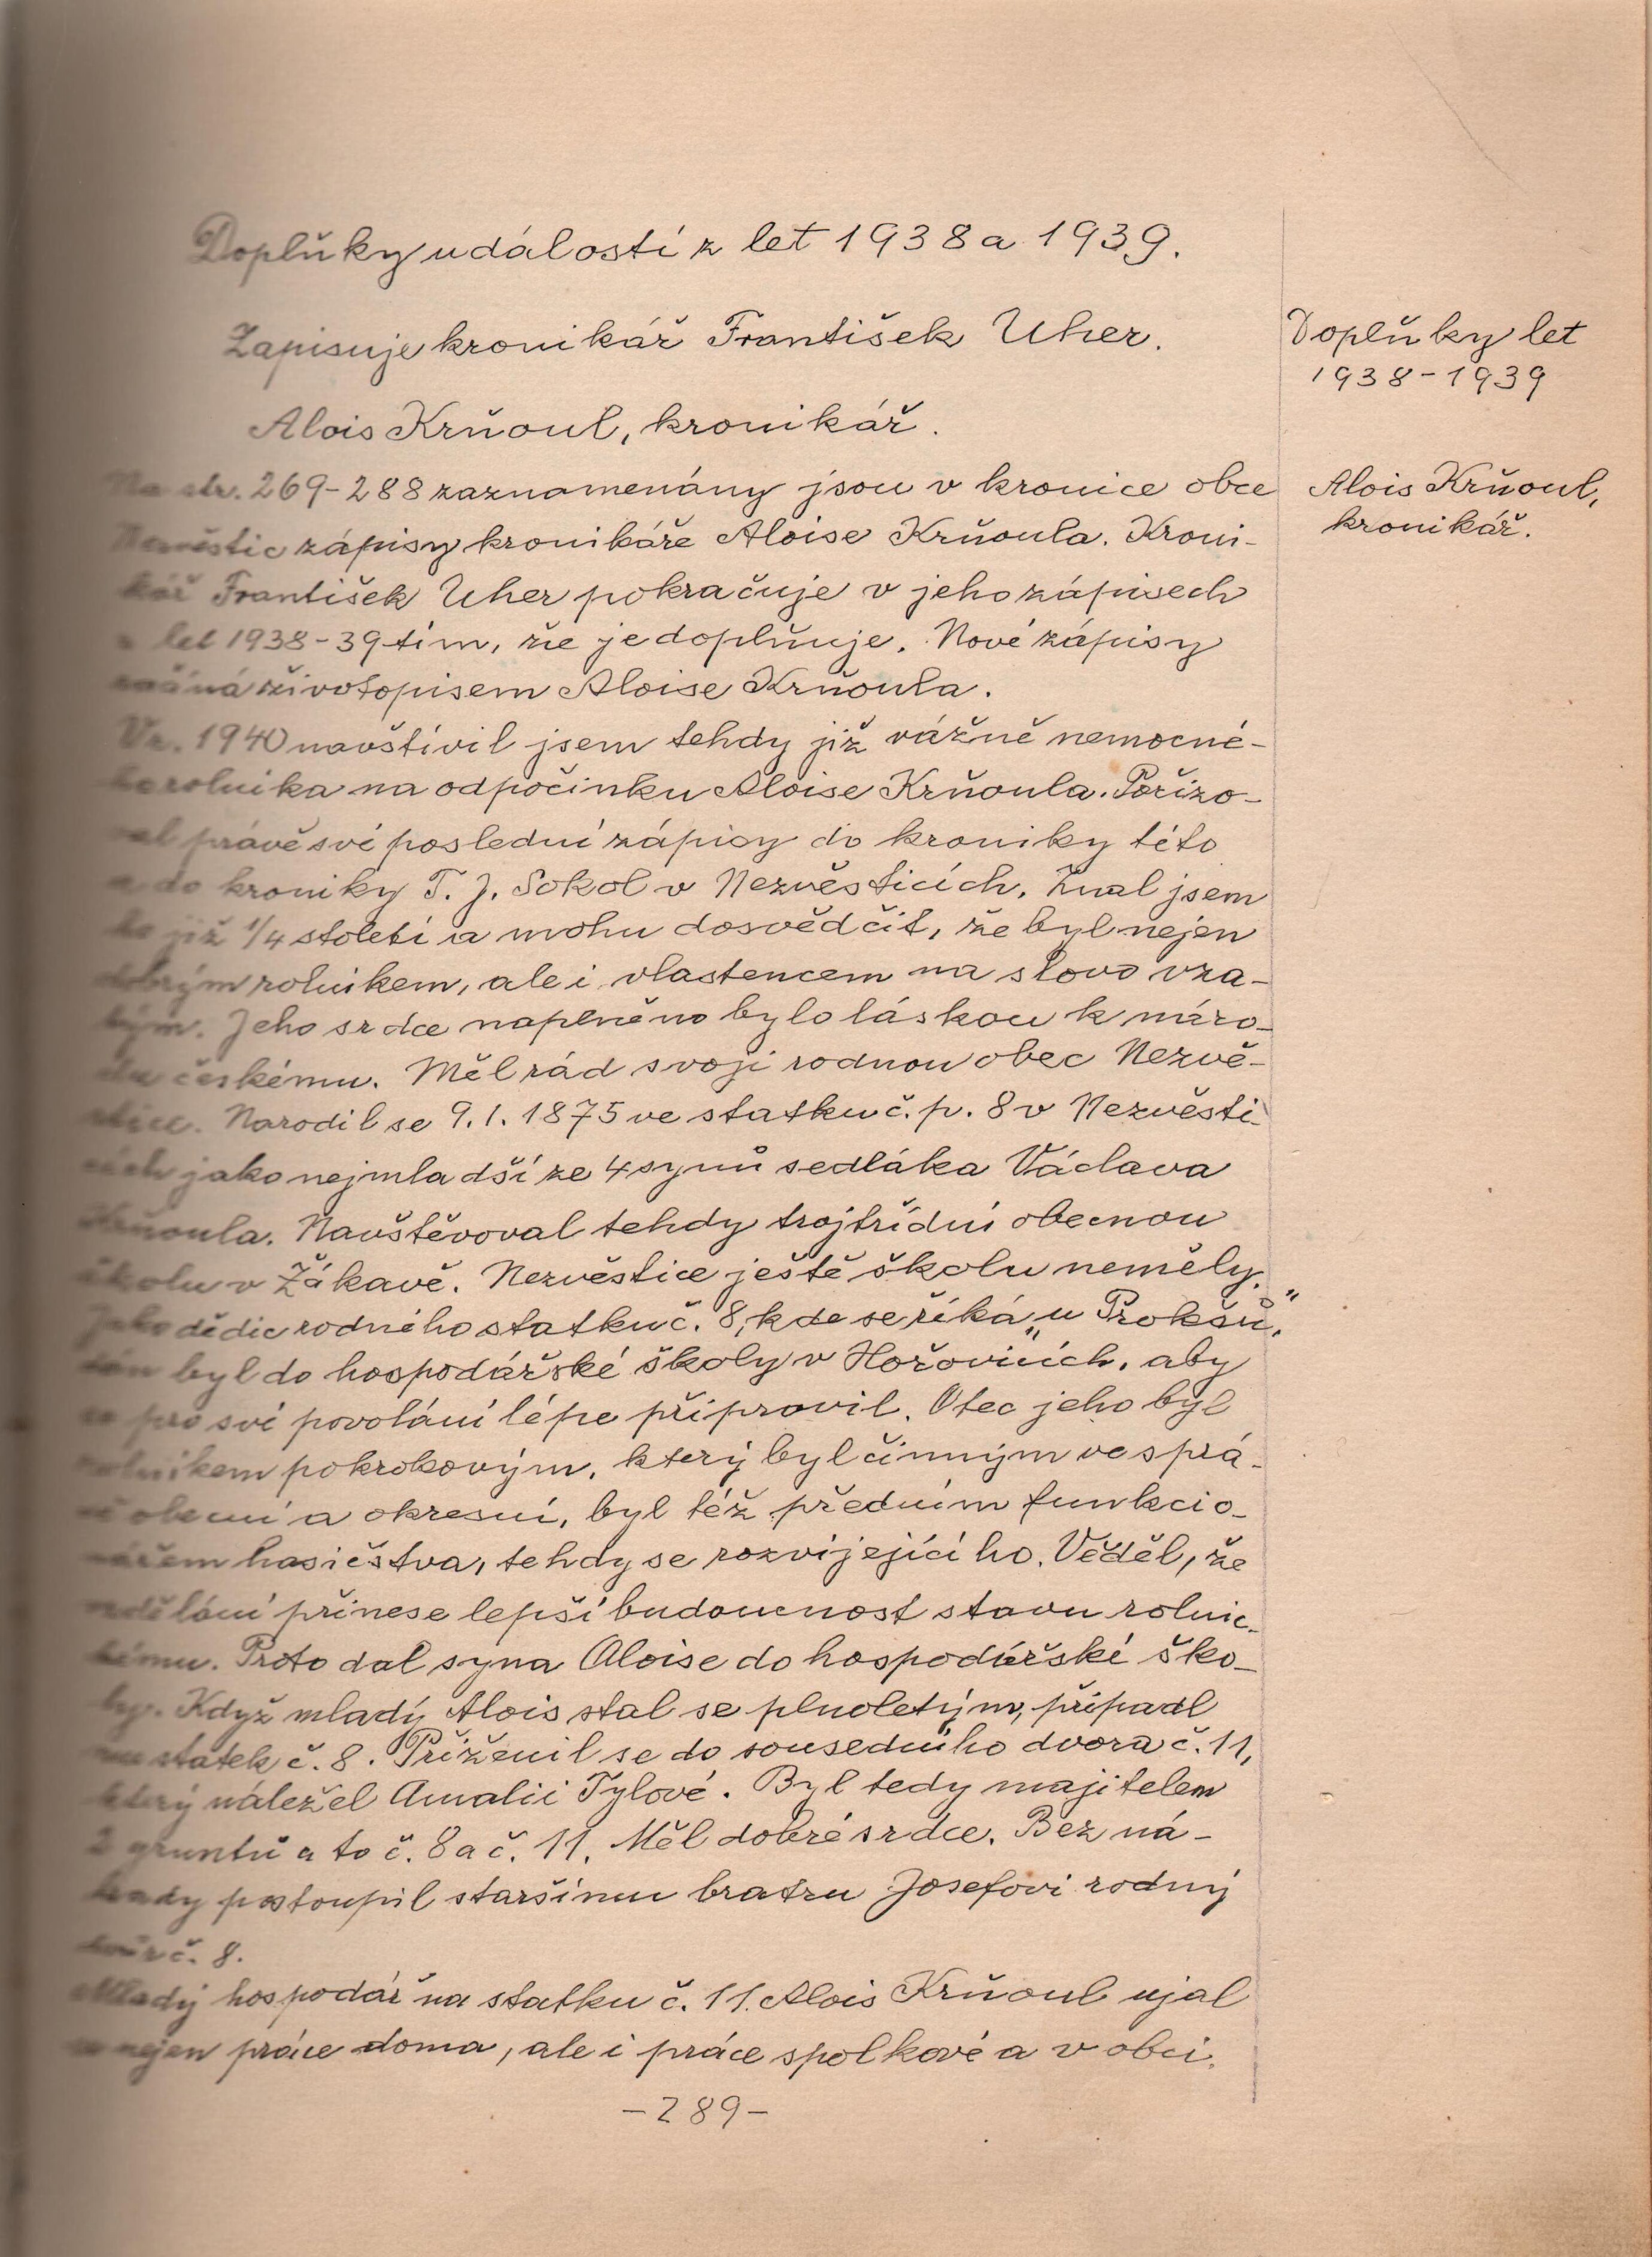 Doplňky událostí z let 1938 a 1939.
Zapisuje kronikář František Uher.
Doplňky let
1938-1939
Alois Krňoul, kronikář.
Alois Krňoul,
kronikář.
Na str. 269-288 zaznamenány jsou v kronice obce
Nezvěstic zápisy kronikáře Aloise Krňoula. Kroni-
kář František Uher pokračuje v jeho zápisech
z let 1938-39 tím, že je doplňuje. Nové zápisy
začíná životopisem Aloise Krňoula.
V r. 1940 navštívil jsem tehdy již vážně nemocné-
ho rolníka na odpočinku Aloise Krňoula. Pořizo-
val právě své poslední zápisy do kroniky této
a do kroniky T. J. Sokol v Nezvěsticích. Znal jsem
ho již 1/4 století a mohu dosvědčit, že byl nejen
dobrým rolníkem, ale i vlastencem na slovo vza-
tým. Jeho srdce naplněno bylo láskou k náro-
du českému. Měl rád svoji rodnou obec Nezvě-
stice. Narodil se 9.1.1875 ve statku č. p. 8 v Nezvěsti-
cích jako nejmladší ze 4 synů sedláka Václava
Krňoula. Navštěvoval tehdy trojtřídní obecnou
školu v Žákavě. Nezvěstice ještě školu neměly.
Jako dědic rodného statku č. 8, kde se říká „u Prokšů",
dán byl do hospodářské školy v Hořovicích, aby
se pro své povolání lépe připravil. Otec jeho byl
rolníkem pokrokovým, který byl činným ve sprá-
vě obecní a okresní, byl též předním funkcio-
nářem hasičstva, tehdy se rozvíjejícího. Věděl, že
vzdělání přinese lepší budoucnost stavu rolnic-
kému. Proto dal syna Aloise do hospodářské ško-
ly. Když mladý Alois stal se plnoletým, připadl
mu statek č. 8. Přiženil se do sousedního dvora č. 11,
který náležel Amalii Tylové. Byl tedy majitelem
2 gruntů a to č. 8 a č. 11. Měl dobré srdce. Bez ná-
hrady postoupil staršímu bratru Josefovi rodný
dvůr č. 8.
Mladý hospodář na statku č. 11. Alois Krňoul ujal
se nejen práce doma, ale i práce spolkové a v obci.
-289-